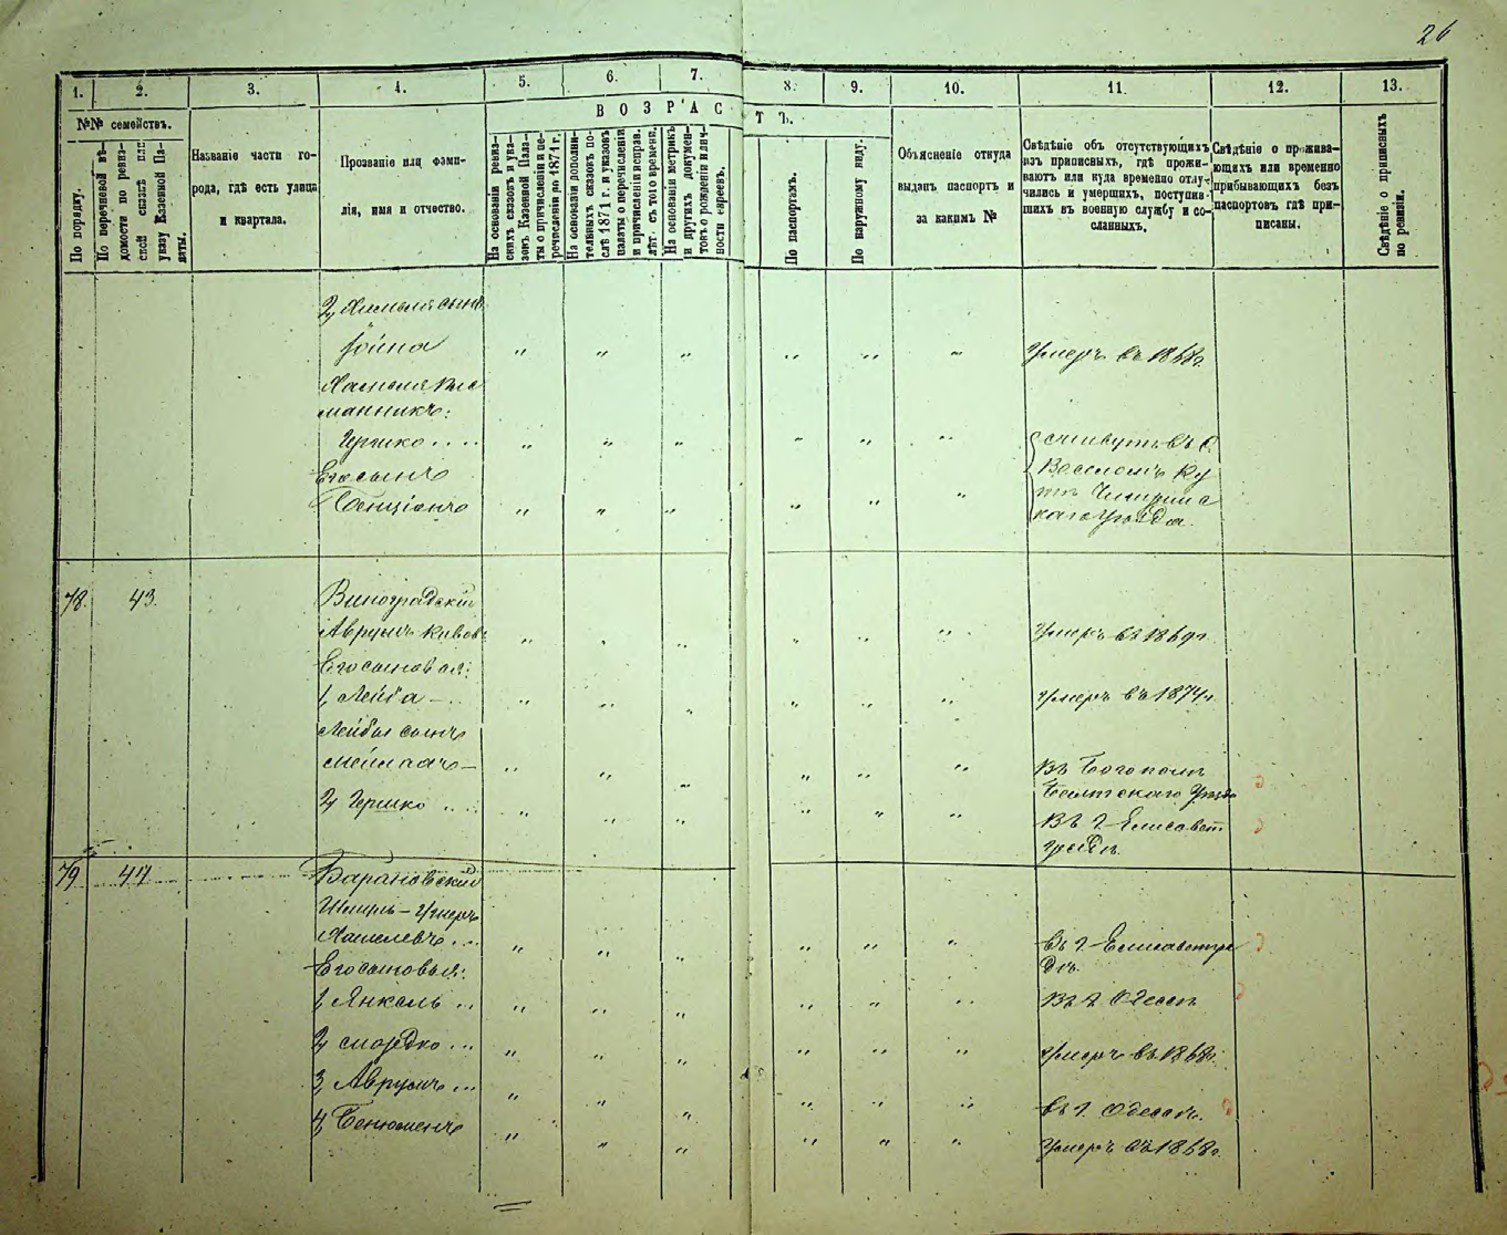 26
1. 2. 3. 4. 5. 6. 7. 8. 9. 10. 11. 12. 13.
№№ семействъ.
ВОЗРАСТЪ.
По порядку.
По перечневой вѣ-
домости по ревиз-
ской сказкѣ или
указу Казенной Па-
латы.
Названіе части го-
рода, гдѣ есть улица
и квартала.
Прозваніе или фами-
лія, имя и отчество.
На основаніи ревиз-
скихъ сказокъ и ука-
зовъ Казенной Пала-
ты о причисленіи и пе-
речисленіи до 1871 г.
На основаніи дополни-
тельныхъ сказокъ по-
слѣ 1871 г. и указовъ
палаты о перечисленіи
и причисленіи исправ.
лѣт. съ того времени.
На основаніи метрикъ
и другихъ докумен-
товъ о рожденіи и лич-
ности евреевъ.
По паспортамъ.
По наружному виду.
Объясненіе откуда
выданъ паспортъ и
за какимъ №
Свѣдѣніе объ отсутствующихъ
изъ приписныхъ, гдѣ прожи-
ваютъ или куда временно отлу-
чились и умершихъ, поступив-
шихъ въ военную службу и со-
сланныхъ.
Свѣдѣніе о прожива-
ющихъ или временно
прибывающихъ безъ
паспортовъ гдѣ при-
писаны.
Свѣдѣніе о приписныхъ
по ревизіи.
Іойна " " " " " " Умеръ въ 1868г.
Гершко .... " " " " " "
Его сынъ
Бенціонъ " " " " " "
каго Уѣзда.
78. 43. Виноградскій
Аврумъ Кивов. " " " " " " Умеръ въ 1869г.
Его сыновья:
1, Лейба - .. " " " " " " Умеръ въ 1874г.
Лейбы сынъ
Мейлахъ - " " " " " " Въ Богополѣ
Балтскаго Уѣзда
2, Гершко .... " " " " " " Въ г. Елисавет
градѣ.
79 44 Барановскій
Хаскелевъ ... " " " " " " Въ г. Елисаветгра
дѣ.
Его сыновья:
1, Янкель .. " " " " " " Въ г. Одессѣ
2, Мордко ... " " " " " " Умеръ въ 1868г.
3, Аврумъ ... " " " " " " Въ г. Одессѣ.
4, Бенюменъ " " " " " " Умеръ въ 1868г.